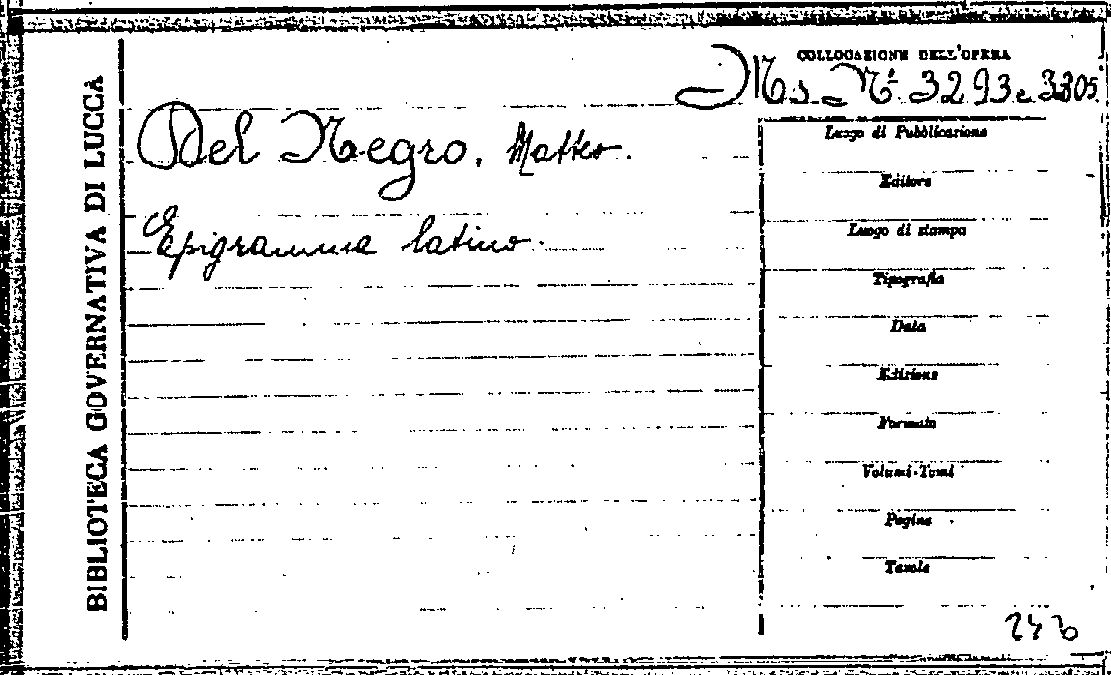 BIBLIOTECA GOVERNATIVA DI LUCCA
COLLOCAZIONE DELL'OPERA
Ms. Nⁱ 3293 e 3305
Del Negro, Matteo.
Epigramma latino.
Luogo di Pubblicazione
Editore
Luogo di stampa
Tipografia
Data
Edizione
Formato
Volumi-Tomi
Pagine
Tavole